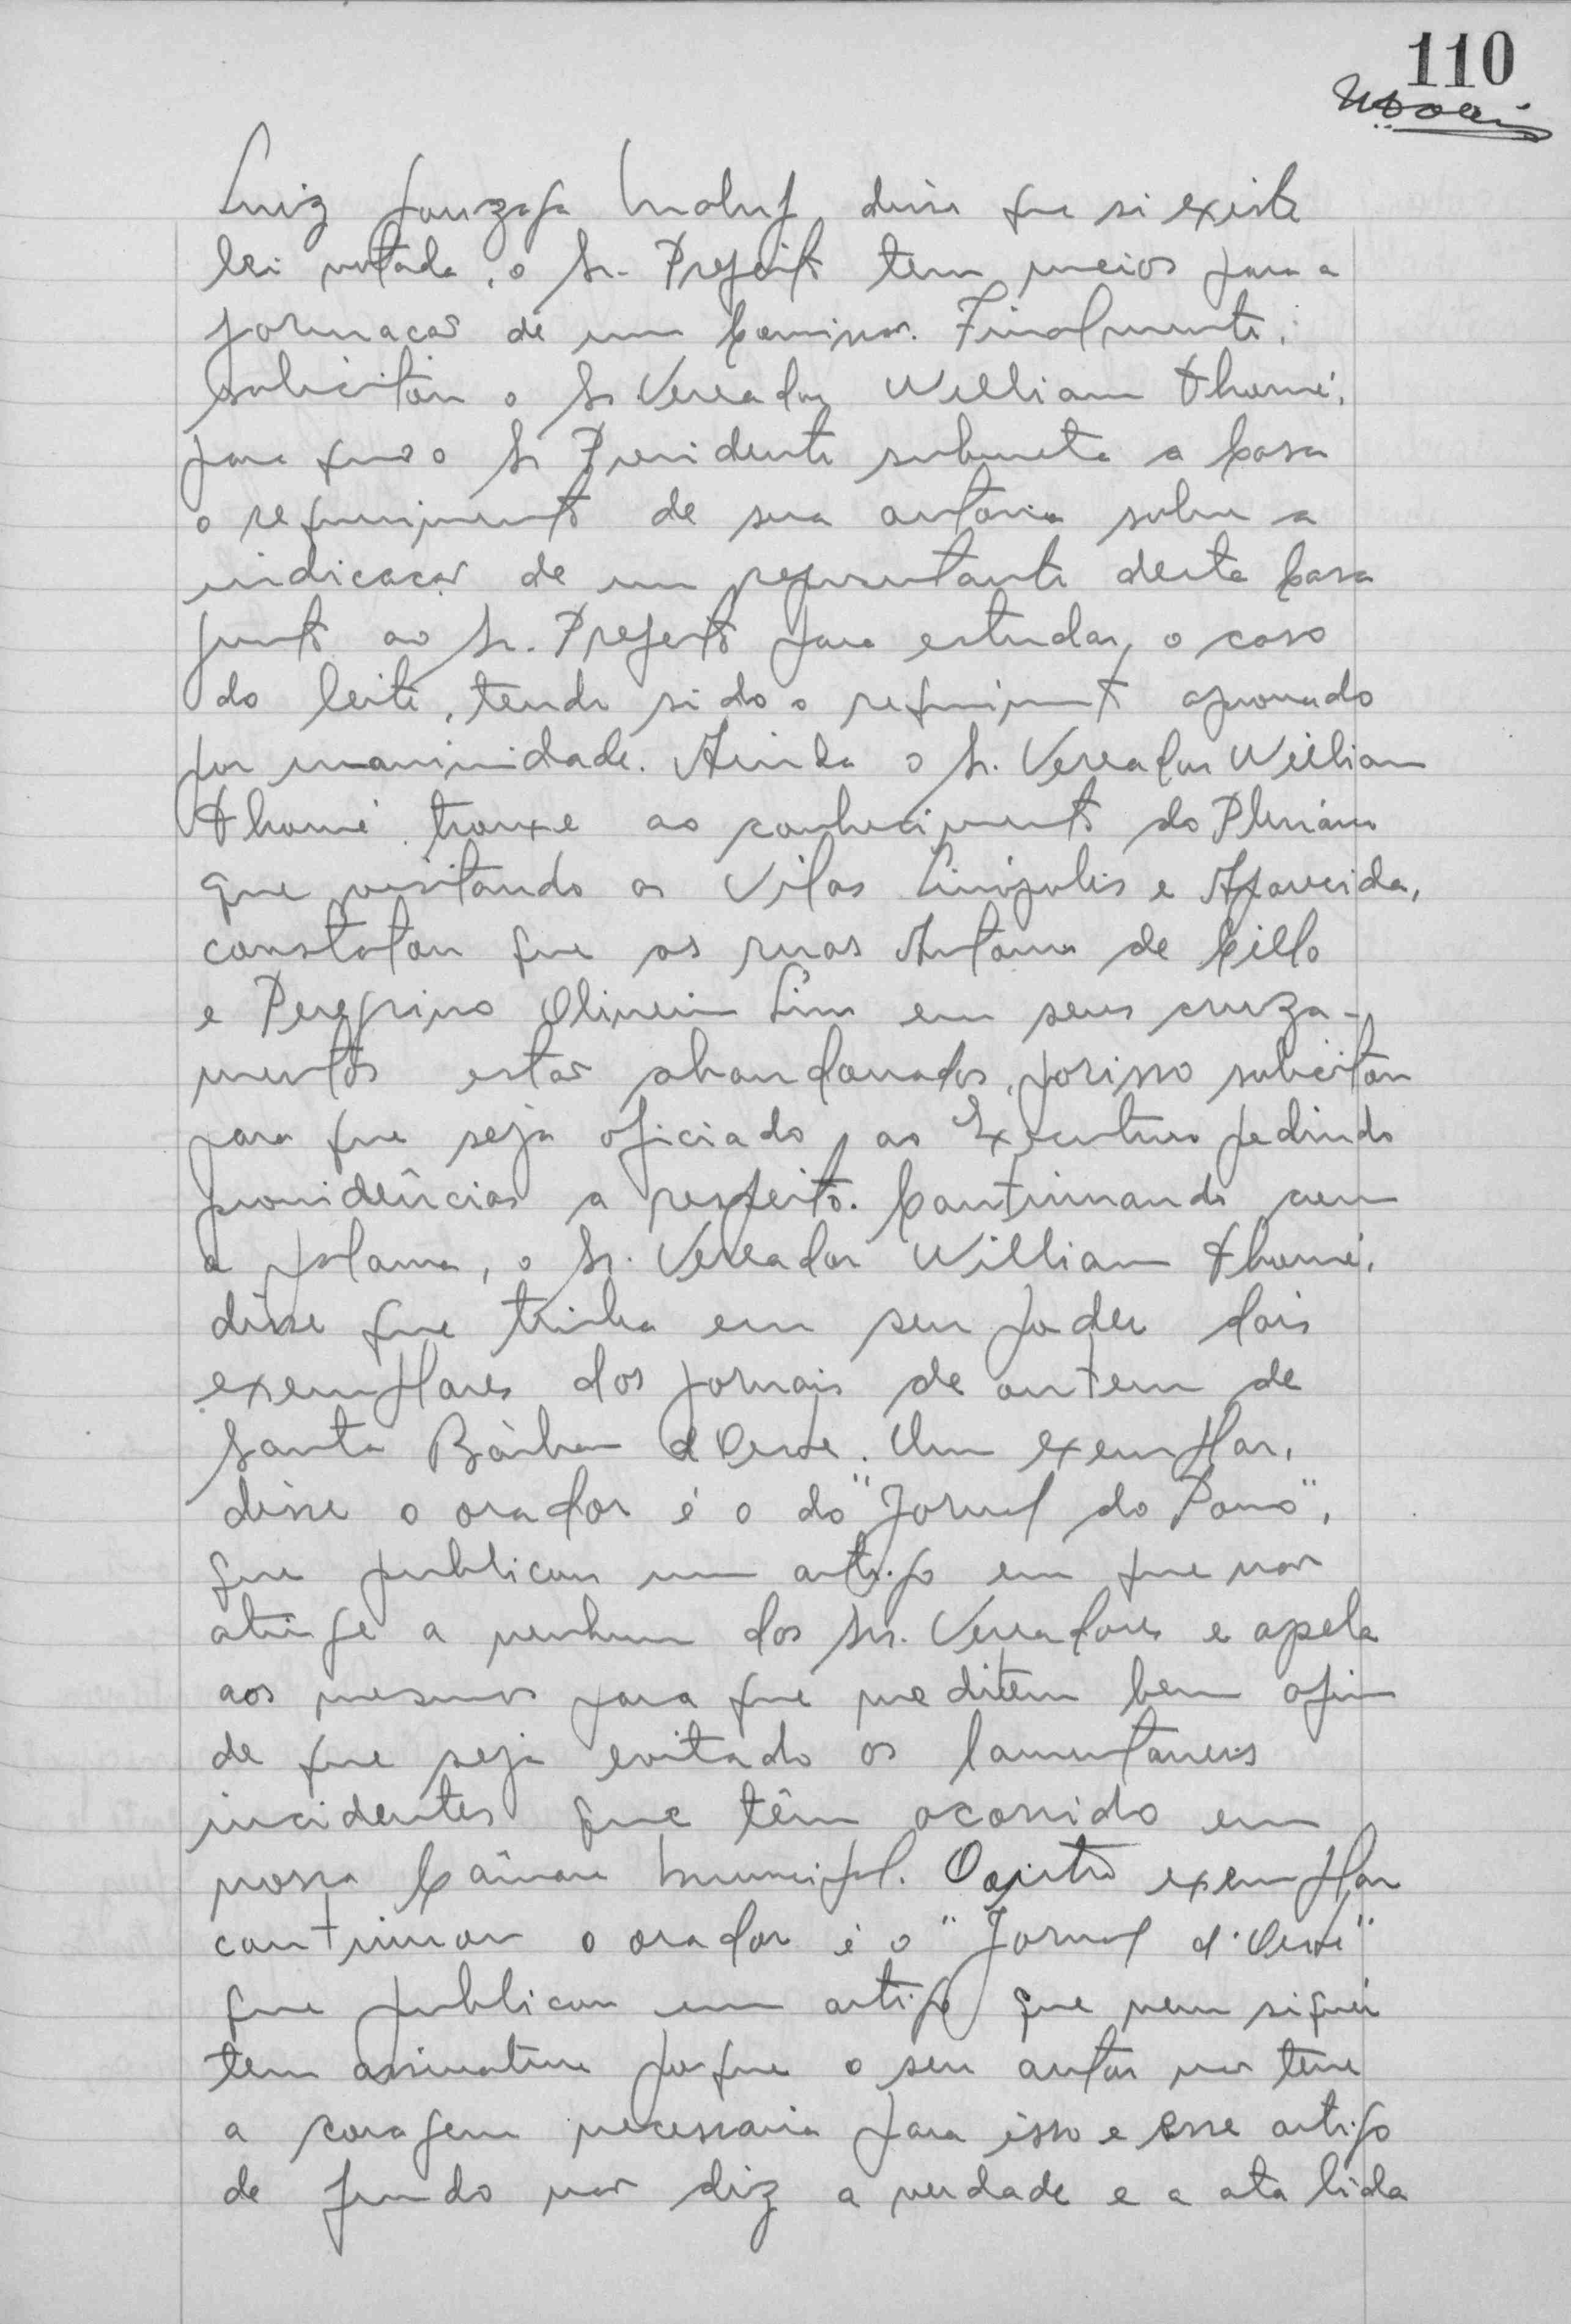 110
Luiz Gonzaga Maluf, disse que si existe
lei votada, o Sr. Prefeito tem meios para a
formacao de um Comissao. Finalmente,
solicitou o Sr Vereador William Thomé,
para que o Sr Presidente submeta a Casa
o requerimento de sua autoria sobre a
indicacao de um representante desta Casa
junto ao Sr. Prefeito para estudar, o caso
do leite, tendo sido o requeriment aprovado
por unanimidade. Ainda o Sr. Vereador William
Thomé trouxe ao conhecimento do Plenário
que visitando as Vilas Linópolis e Aparecida,
constatou que as ruas Antonio de Cillo
e Peregrino Oliveira Lino em seus cruza-
mentos estao abandonados, porisso solicitou
para que seja oficiado ao Executivo pedindo
providências a respeito. Continuando com
a palavra, o Sr. Vereador William Thomé,
disse que tinha em seu poder dois
exemplares dos jornais de ontem de
Santa Bárbara d'Oeste. Um exemplar,
disse o orador é o do "Jornal do Povo",
que publicou um artigo em que nao
atinge a nenhum dos Srs. Vereadores e apela
aos mesmos para que meditem bem afim
de que seja evitado os lamentaveis
incidentes que têm ocorrido em
nossa Câmara Municipal. O outro exemplar
continuou o orador é o "Jornal d'Oeste"
que publicou um artigo que nem siquer
tem assinatura porque o seu autor nao teve
a coragem necessaria para isso e esse artigo
de fundo nao diz a verdade e a ata lida